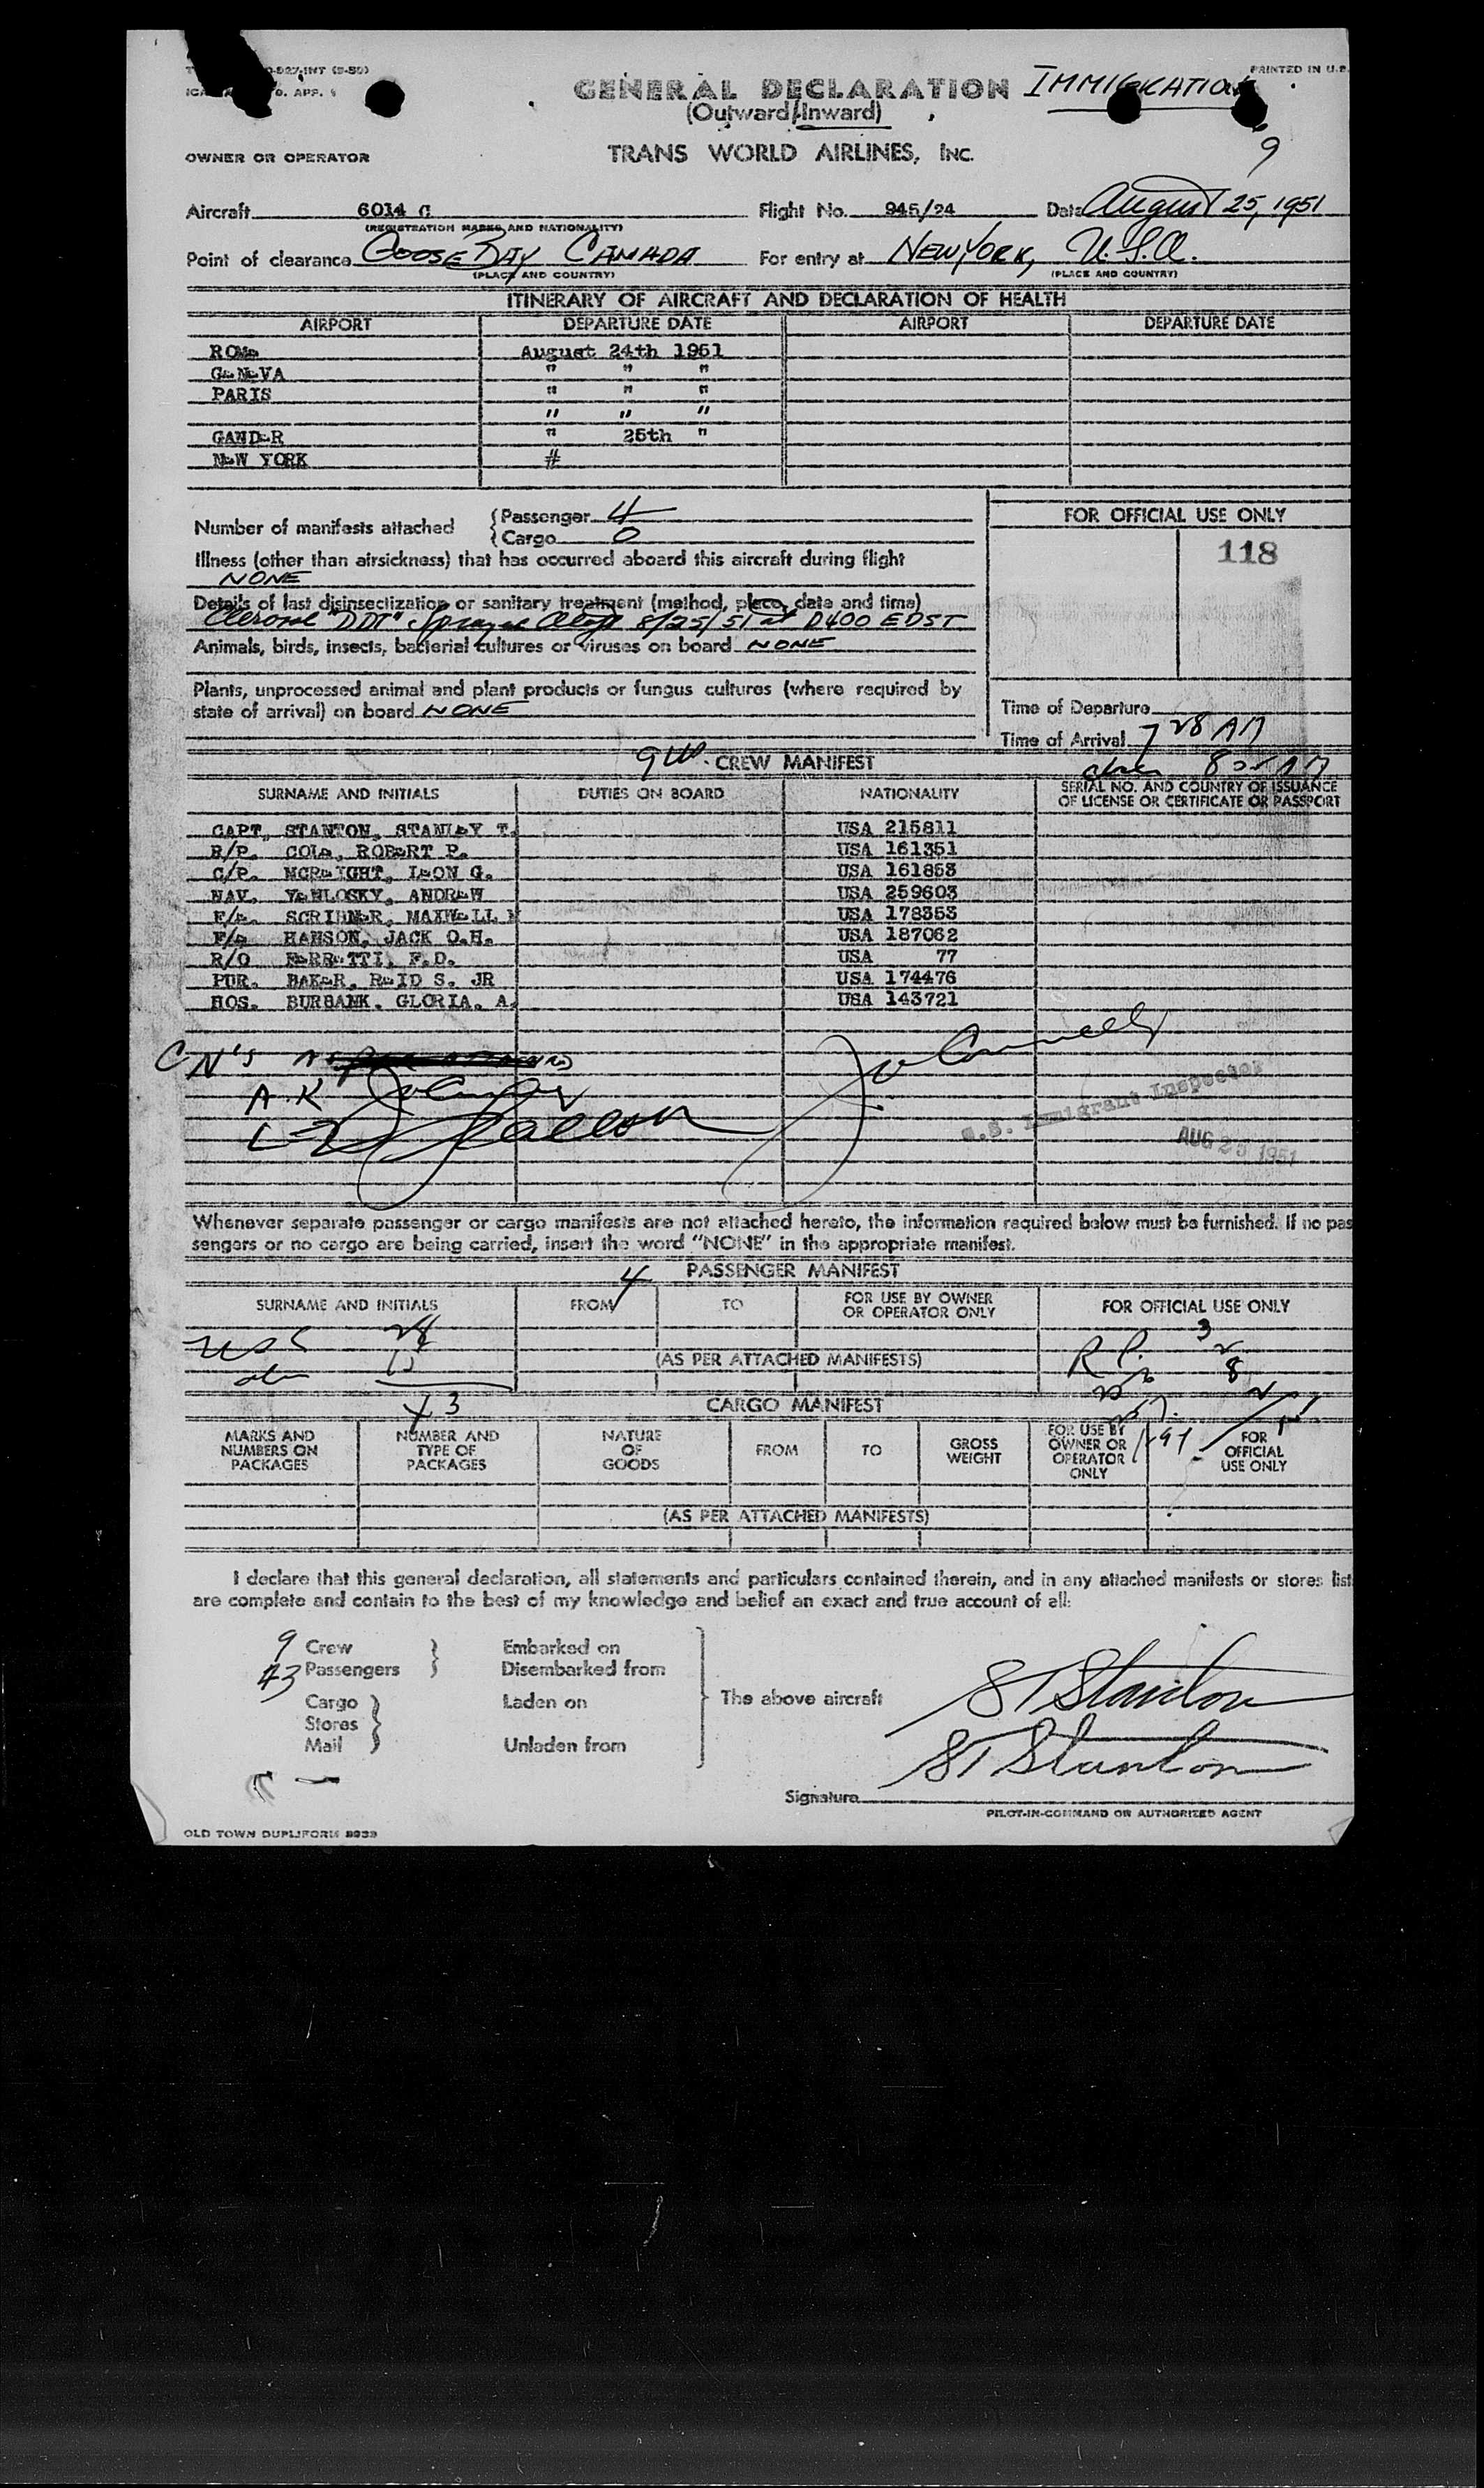 -927-INT (5-50)
PRINTED IN U.S.
GENERAL DECLARATION IMMIGRATION
(Outward/Inward)
9
OWNER OR OPERATOR TRANS WORLD AIRLINES, INC.
Aircraft 6014 C Flight No. 945/24 Date August 25, 1951
(REGISTRATION MARKS AND NATIONALITY)
Point of clearance GOOSE BAY CANADA For entry at NEW YORK, U.S.A.
(PLACE AND COUNTRY) (PLACE AND COUNTRY)
ITINERARY OF AIRCRAFT AND DECLARATION OF HEALTH
AIRPORT DEPARTURE DATE AIRPORT DEPARTURE DATE
ROMe August 24th 1951
GeNeVA " " "
PARIS " " "
" " "
GANDeR " 25th "
NeW YORK #
Number of manifests attached {Passenger 4
{Cargo 0
FOR OFFICIAL USE ONLY
118
Illness (other than airsickness) that has occurred aboard this aircraft during flight
NONE
Details of last disinsectization or sanitary treatment (method, place, date and time)
Aerosol "DDT" 8/25/51 at 0400 EDST
Animals, birds, insects, bacterial cultures or viruses on board NONE
Plants, unprocessed animal and plant products or fungus cultures (where required by
state of arrival) on board NONE
Time of Departure
Time of Arrival 7 28 AM
CREW MANIFEST
SURNAME AND INITIALS DUTIES ON BOARD NATIONALITY SERIAL NO. AND COUNTRY OF ISSUANCE
OF LICENSE OR CERTIFICATE OR PASSPORT
CAPT. STANTON, STANLeY T. USA 215811
R/P. COLe, ROBeRT P. USA 161351
C/P. MCReIGHT, LeON G. USA 161853
NAV. YeNLOSKY, ANDReW USA 259603
F/e. SCRIBNeR, MAXWeLL USA 178353
F/e HANSON, JACK O.H. USA 187062
R/O FeRReTTI, F.D. USA 77
PUR. BAKeR, ReID S. JR USA 174476
HOS. BURBANK, GLORIA. A. USA 143721
CN'S
U.S. Immigrant Inspector
AUG 25 1951
Whenever separate passenger or cargo manifests are not attached hereto, the information required below must be furnished. If no pas
sengers or no cargo are being carried, insert the word "NONE" in the appropriate manifest.
4 PASSENGER MANIFEST
SURNAME AND INITIALS FROM TO FOR USE BY OWNER
OR OPERATOR ONLY FOR OFFICIAL USE ONLY
28
(AS PER ATTACHED MANIFESTS)
43
CARGO MANIFEST
MARKS AND
NUMBERS ON
PACKAGES
NUMBER AND
TYPE OF
PACKAGES
NATURE
OF
GOODS
FROM
TO
GROSS
WEIGHT
FOR USE BY
OWNER OR
OPERATOR
ONLY
FOR
OFFICIAL
USE ONLY
(AS PER ATTACHED MANIFESTS)
I declare that this general declaration, all statements and particulars contained therein, and in any attached manifests or stores list
are complete and contain to the best of my knowledge and belief an exact and true account of all:
9 Crew } Embarked on
43 Passengers } Disembarked from
Cargo } Laden on
Stores
Mail } Unladen from
The above aircraft
ST Stanton
ST Stanton
Signature
PILOT-IN-COMMAND OR AUTHORIZED AGENT
OLD TOWN DUPLIFORM